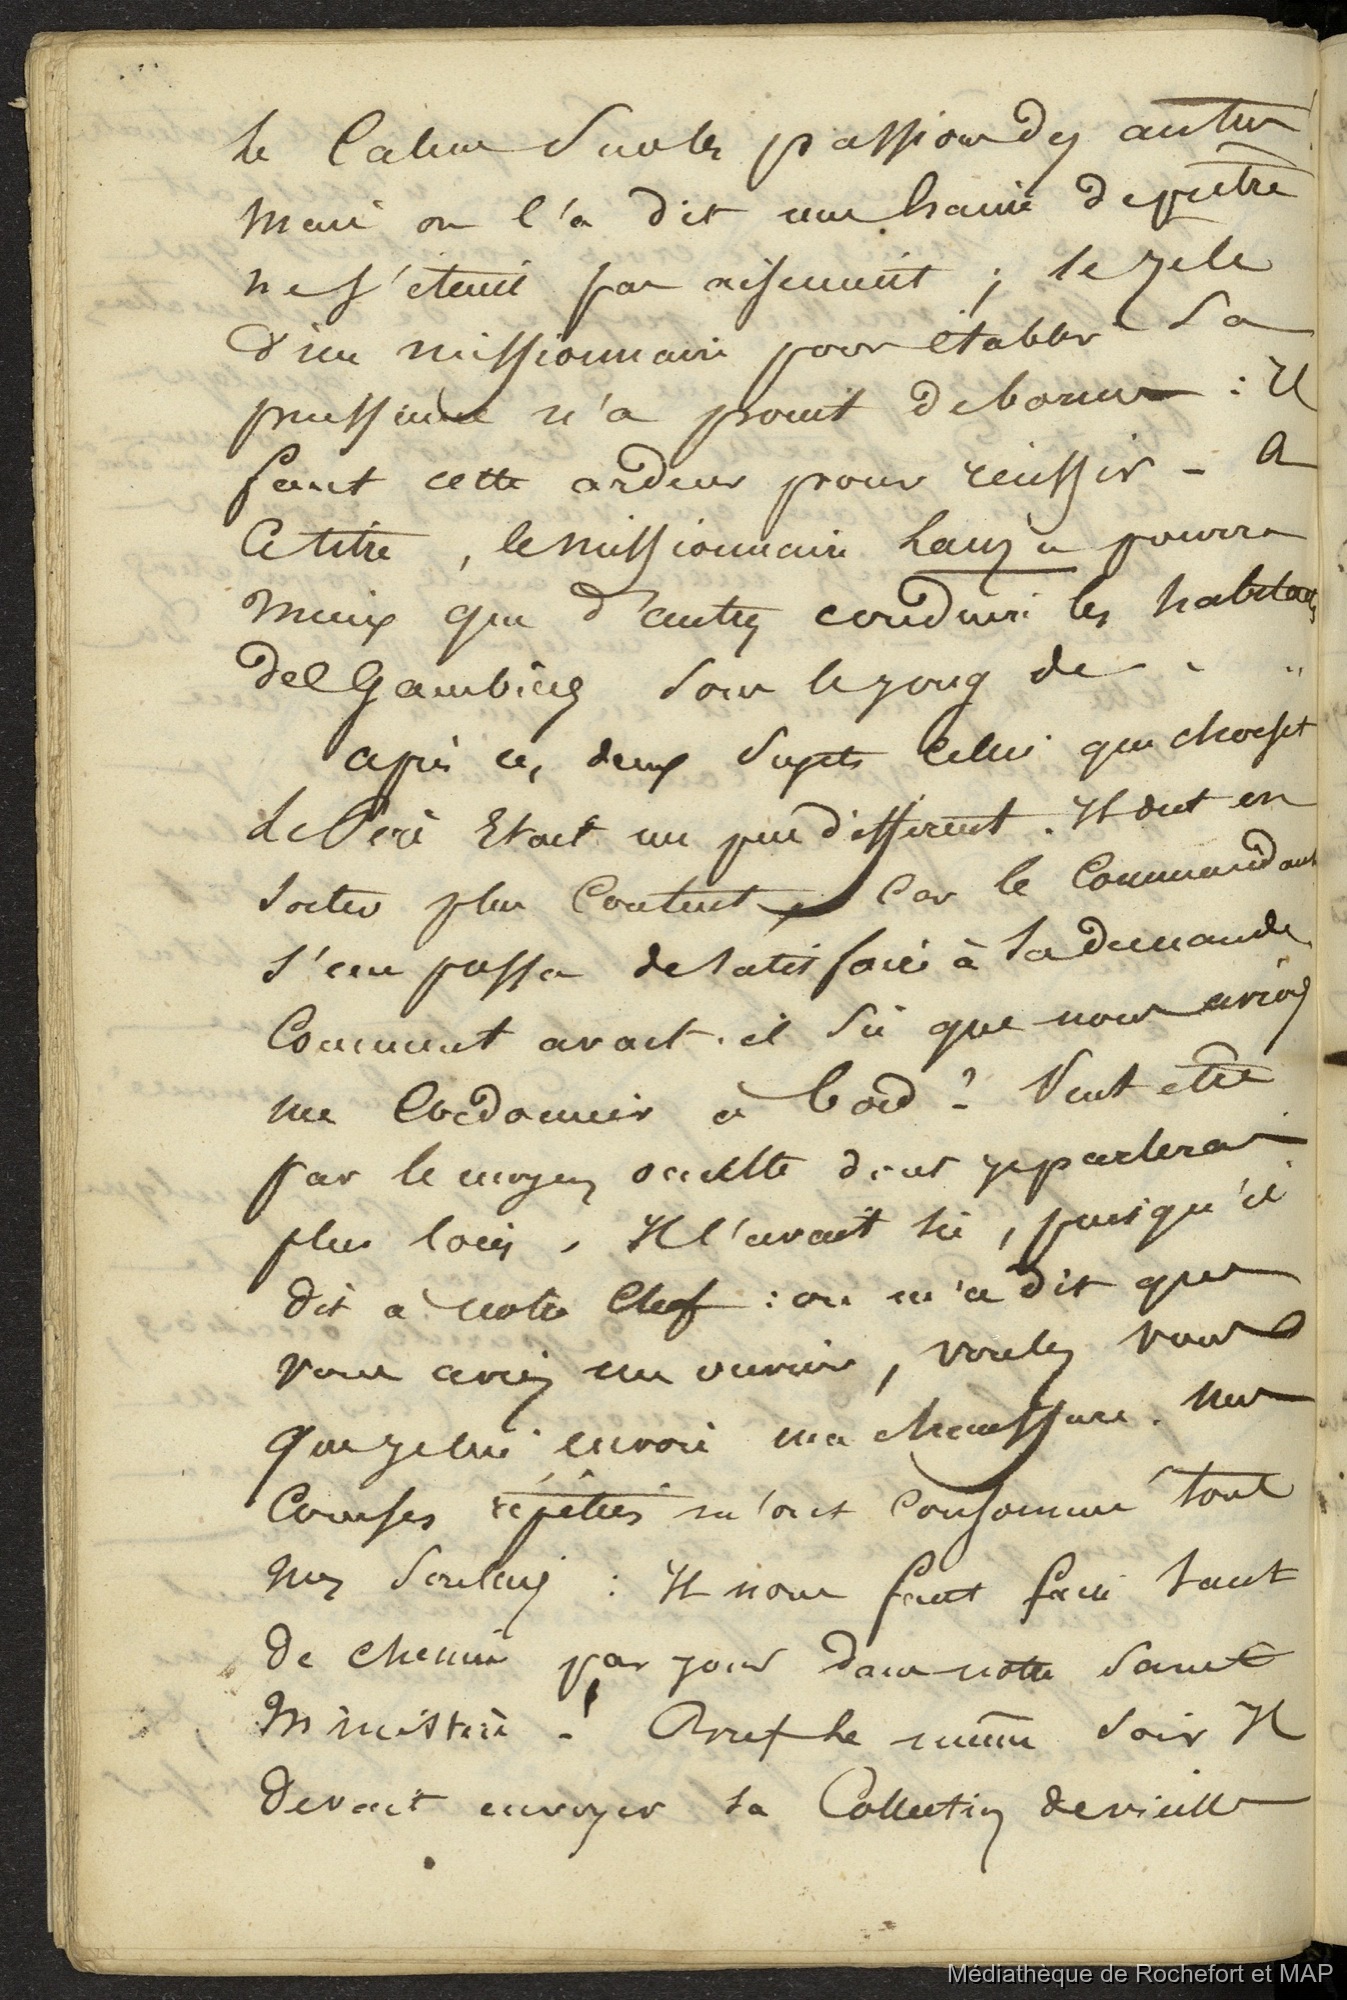 le Calme sur les passions des autres
mais on l'a dit une haine de prêtre
ne s'éteint pas aisement ; le zele
d'un missionnaire pour établir sa
puissance n'a point de bornes : Il
faut cette ardeur pour réussir - A
Ce titre , le missionnaire pourra
mieux que d'autres conduire les habitants
des Gambiers sous le joug de - - "
après ces deux sujets celui que choisit
le Père Etait un peu different . Il dut en
sortir plus Content , Car le Commandant
s'empressa de satisfaire à sa demande
Comment avait-il su que nous avions
un Cordonnier à bord ? Peut etre
par le moyen occulte dont je parlerai
plus loin , Il l'avait su , puisqu'il
dit à notre Chef : on m'a dit que
vous aviez un ouvrier , voulez vous
que je lui envoie ma chaussure . Mes
Courses répétées m'ont consommé tous
mes souliers : Il nous faut faire tant
de chemin par jour dans notre saint
Ministère - Bref le même soir Il
devait envoyer sa Collection de vieilles
Médiathèque de Rochefort et MAP